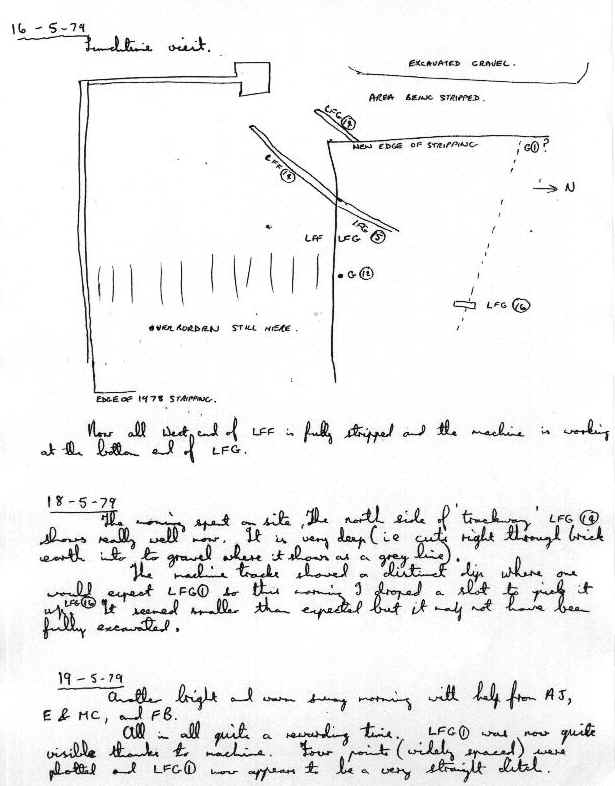 16-5-79
Lunchtime visit.
EXCAVATED GRAVEL.
AREA BEING STRIPPED.
LFG 14
NEW EDGE OF STRIPPING
G 1 ?
LFF 14
N
LFG 5
LFF LFG
G 12
LFG 16
OVERBURDEN STILL HERE.
EDGE OF 1978 STRIPPING.
Now all West end of LFF is fully stripped and the machine is working
at the bottom end of LFG.
18-5-79
The morning spent on site, The north side of 'trackway' LFG 14
shows really well now. It is very deep (ie cuts right through brick
earth into to gravel where it shows as a grey line).
The machine tracks showed a distinct dip where one
would expect LFG 1 so this morning I droped a slot to pick it
up, LFG 16 It seemed smaller than expected but it may not have been
fully excavated.
19-5-79
Another bright and warm sunny morning with help from AJ,
E & MC, and FB.
All in all quite a rewarding time. LFG 1 was now quite
visible thanks to machine. Four points (widely spaced) were
plotted and LFG 1 now appears to be a very straight ditch.